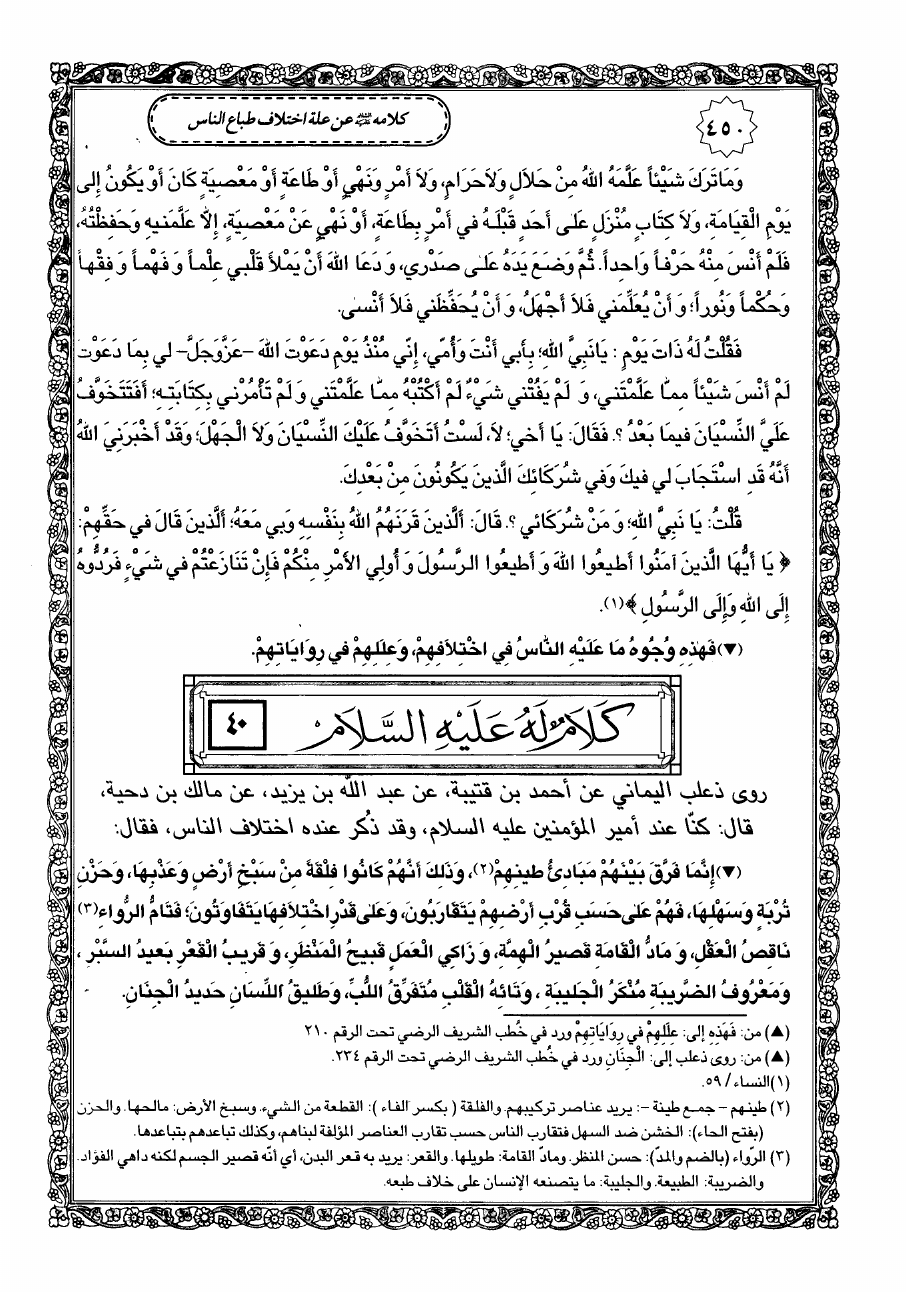 ٤٥٠
كلامه ﷺ عن علة اختلاف طباع الناس
وَمَا تَرَكَ شَيْئاً عَلَّمَهُ اللهُ مِنْ حَلاَلٍ وَلاَحَرَامٍ، وَلاَ أَمْرٍ وَنَهْيٍ أَوْ طَاعَةٍ أَوْ مَعْصِيَةٍ كَانَ أَوْ يَكُونُ إِلى
يَوْمِ الْقِيَامَةِ، وَلاَ كِتَابٍ مُنْزَلٍ عَلى أَحَدٍ قَبْلَهُ في أَمْرٍ بِطَاعَةٍ، أَوْ نَهْيٍ عَنْ مَعْصِيَةٍ، إِلاَّ عَلَّمَنيهِ وَحَفِظْتُهُ،
فَلَمْ أَنْسَ مِنْهُ حَرْفاً وَاحِداً. ثُمَّ وَضَعَ يَدَهُ عَلى صَدْري، وَ دَعَا اللهَ أَنْ يَمْلأَ قَلْبي عِلْماً وَ فَهْماً وَ فِقْهاً
وَحُكْماً وَنُوراً؛ وَ أَنْ يُعَلِّمَني فَلاَ أَجْهَلُ، وَ أَنْ يُحَفِّظَني فَلاَ أَنْسى.
فَقُلْتُ لَهُ ذَاتَ يَوْمٍ : يَا نَبِيَّ اللهِ؛ بِأَبي أَنْتَ وَأُمّي، إِنّي مُنْذُ يَوْمِ دَعَوْتَ اللهَ –عَزَّوَجَلَّ– لي بِمَا دَعَوْتَ
لَمْ أَنْسَ شَيْئاً مِمَّا عَلَّمْتَني، وَ لَمْ يَفُتْني شَيْءٌ لَمْ أَكْتُبْهُ مِمَّا عَلَّمْتَني وَ لَمْ تَأْمُرْني بِكِتَابَتِهِ؛ أَفَتَتَخَوَّفُ
عَلَيَّ النِّسْيَانَ فيمَا بَعْدُ ؟. فَقَالَ: يَا أَخي؛ لاَ، لَسْتُ أَتَخَوَّفُ عَلَيْكَ النِّسْيَانَ وَلاَ الْجَهْلَ؛ وَقَدْ أَخْبَرَنِيَ اللهُ
أَنَّهُ قَدِ اسْتَجَابَ لي فيكَ وَفي شُرَكَائِكَ الَّذينَ يَكُونُونَ مِنْ بَعْدِكَ.
قُلْتُ: يَا نَبِيَّ اللهِ؛ وَ مَنْ شُرَكَائي ؟. قَالَ: أَلَّذينَ قَرَنَهُمُ اللهُ بِنَفْسِهِ وَبي مَعَهُ؛ أَلَّذينَ قَالَ في حَقِّهِمْ:
﴿ يَا أَيُّهَا الَّذينَ آمَنُوا أَطيعُوا اللهَ وَ أَطيعُوا الرَّسُولَ وَ أُولِي الأَمْرِ مِنْكُمْ فَإِنْ تَنَازَعْتُمْ في شَيْءٍ فَرُدُّوهُ
إِلَى اللهِ وَإِلَى الرَّسُولِ ﴾(١).
(▼)فَهذِهِ وُجُوهُ مَا عَلَيْهِ النَّاسُ فِي اخْتِلاَفِهِمْ، وَعِلَلِهِمْ في رِوَايَاتِهِمْ.
كَلَامٌ لَهُ عَلَيْهِ السَّلَامُ
٤٠
روى ذعلب اليماني عن أحمد بن قتيبة، عن عبد اللّه بن يزيد، عن مالك بن دحية،
قال: كنّا عند أمير المؤمنين عليه السلام، وقد ذُكر عنده اختلاف الناس، فقال:
(▼)إِنَّمَا فَرَّقَ بَيْنَهُمْ مَبَادِئُ طينِهِمْ(٢)، وَذَلِكَ أَنَّهُمْ كَانُوا فِلْقَةً مِنْ سَبْخِ أَرْضٍ وَعَذْبِهَا، وَحَزْنِ
تُرْبَةٍ وَسَهْلِهَا، فَهُمْ عَلى حَسَبِ قُرْبِ أَرْضِهِمْ يَتَقَارَبُونَ، وَعَلى قَدْرِ اخْتِلاَفِهَا يَتَفَاوَتُونَ؛ فَتَامُّ الرُّوَاءِ(٣)
نَاقِصُ الْعَقْلِ، وَ مَادُّ الْقَامَةِ قَصيرُ الْهِمَّةِ، وَ زَاكِي الْعَمَلِ قَبيحُ الْمَنْظَرِ، وَ قَريبُ الْقَعْرِ بَعيدُ السَّبْرِ ،
وَمَعْرُوفُ الضَّريبَةِ مُنْكَرُ الْجَليبَةِ ، وَتَائِهُ الْقَلْبِ مُتَفَرِّقُ اللُّبِّ، وَطَليقُ اللِّسَانِ حَديدُ الْجَنَانِ.
(▲) من: فَهَذِهِ إلى: عِلَلِهِمْ في رِوَايَاتِهِمْ ورد في خُطب الشريف الرضي تحت الرقم ٢١٠
(▲) من: روى ذعلب إلى: الْجَنَانِ ورد في خُطب الشريف الرضي تحت الرقم ٢٣٤.
(١)النساء / ٥٩.
(٢) طينهم – جمع طينة –: يريد عناصر تركيبهم. والفلقة ( بكسر الفاء ): القطعة من الشيء. وسبخ الأرض: مالحها. والحزن
(بفتح الحاء): الخشن ضد السهل فتقارب الناس حسب تقارب العناصر المؤلفة لبناهم، وكذلك تباعدهم بتباعدها.
(٣) الرّواء (بالضم والمدّ): حسن المنظر. ومادّ القامة: طويلها. والقعر: يريد به قعر البدن، أي أنّه قصير الجسم لكنه داهي الفؤاد.
والضريبة: الطبيعة. والجليبة: ما يتصنعه الإنسان على خلاف طبعه.